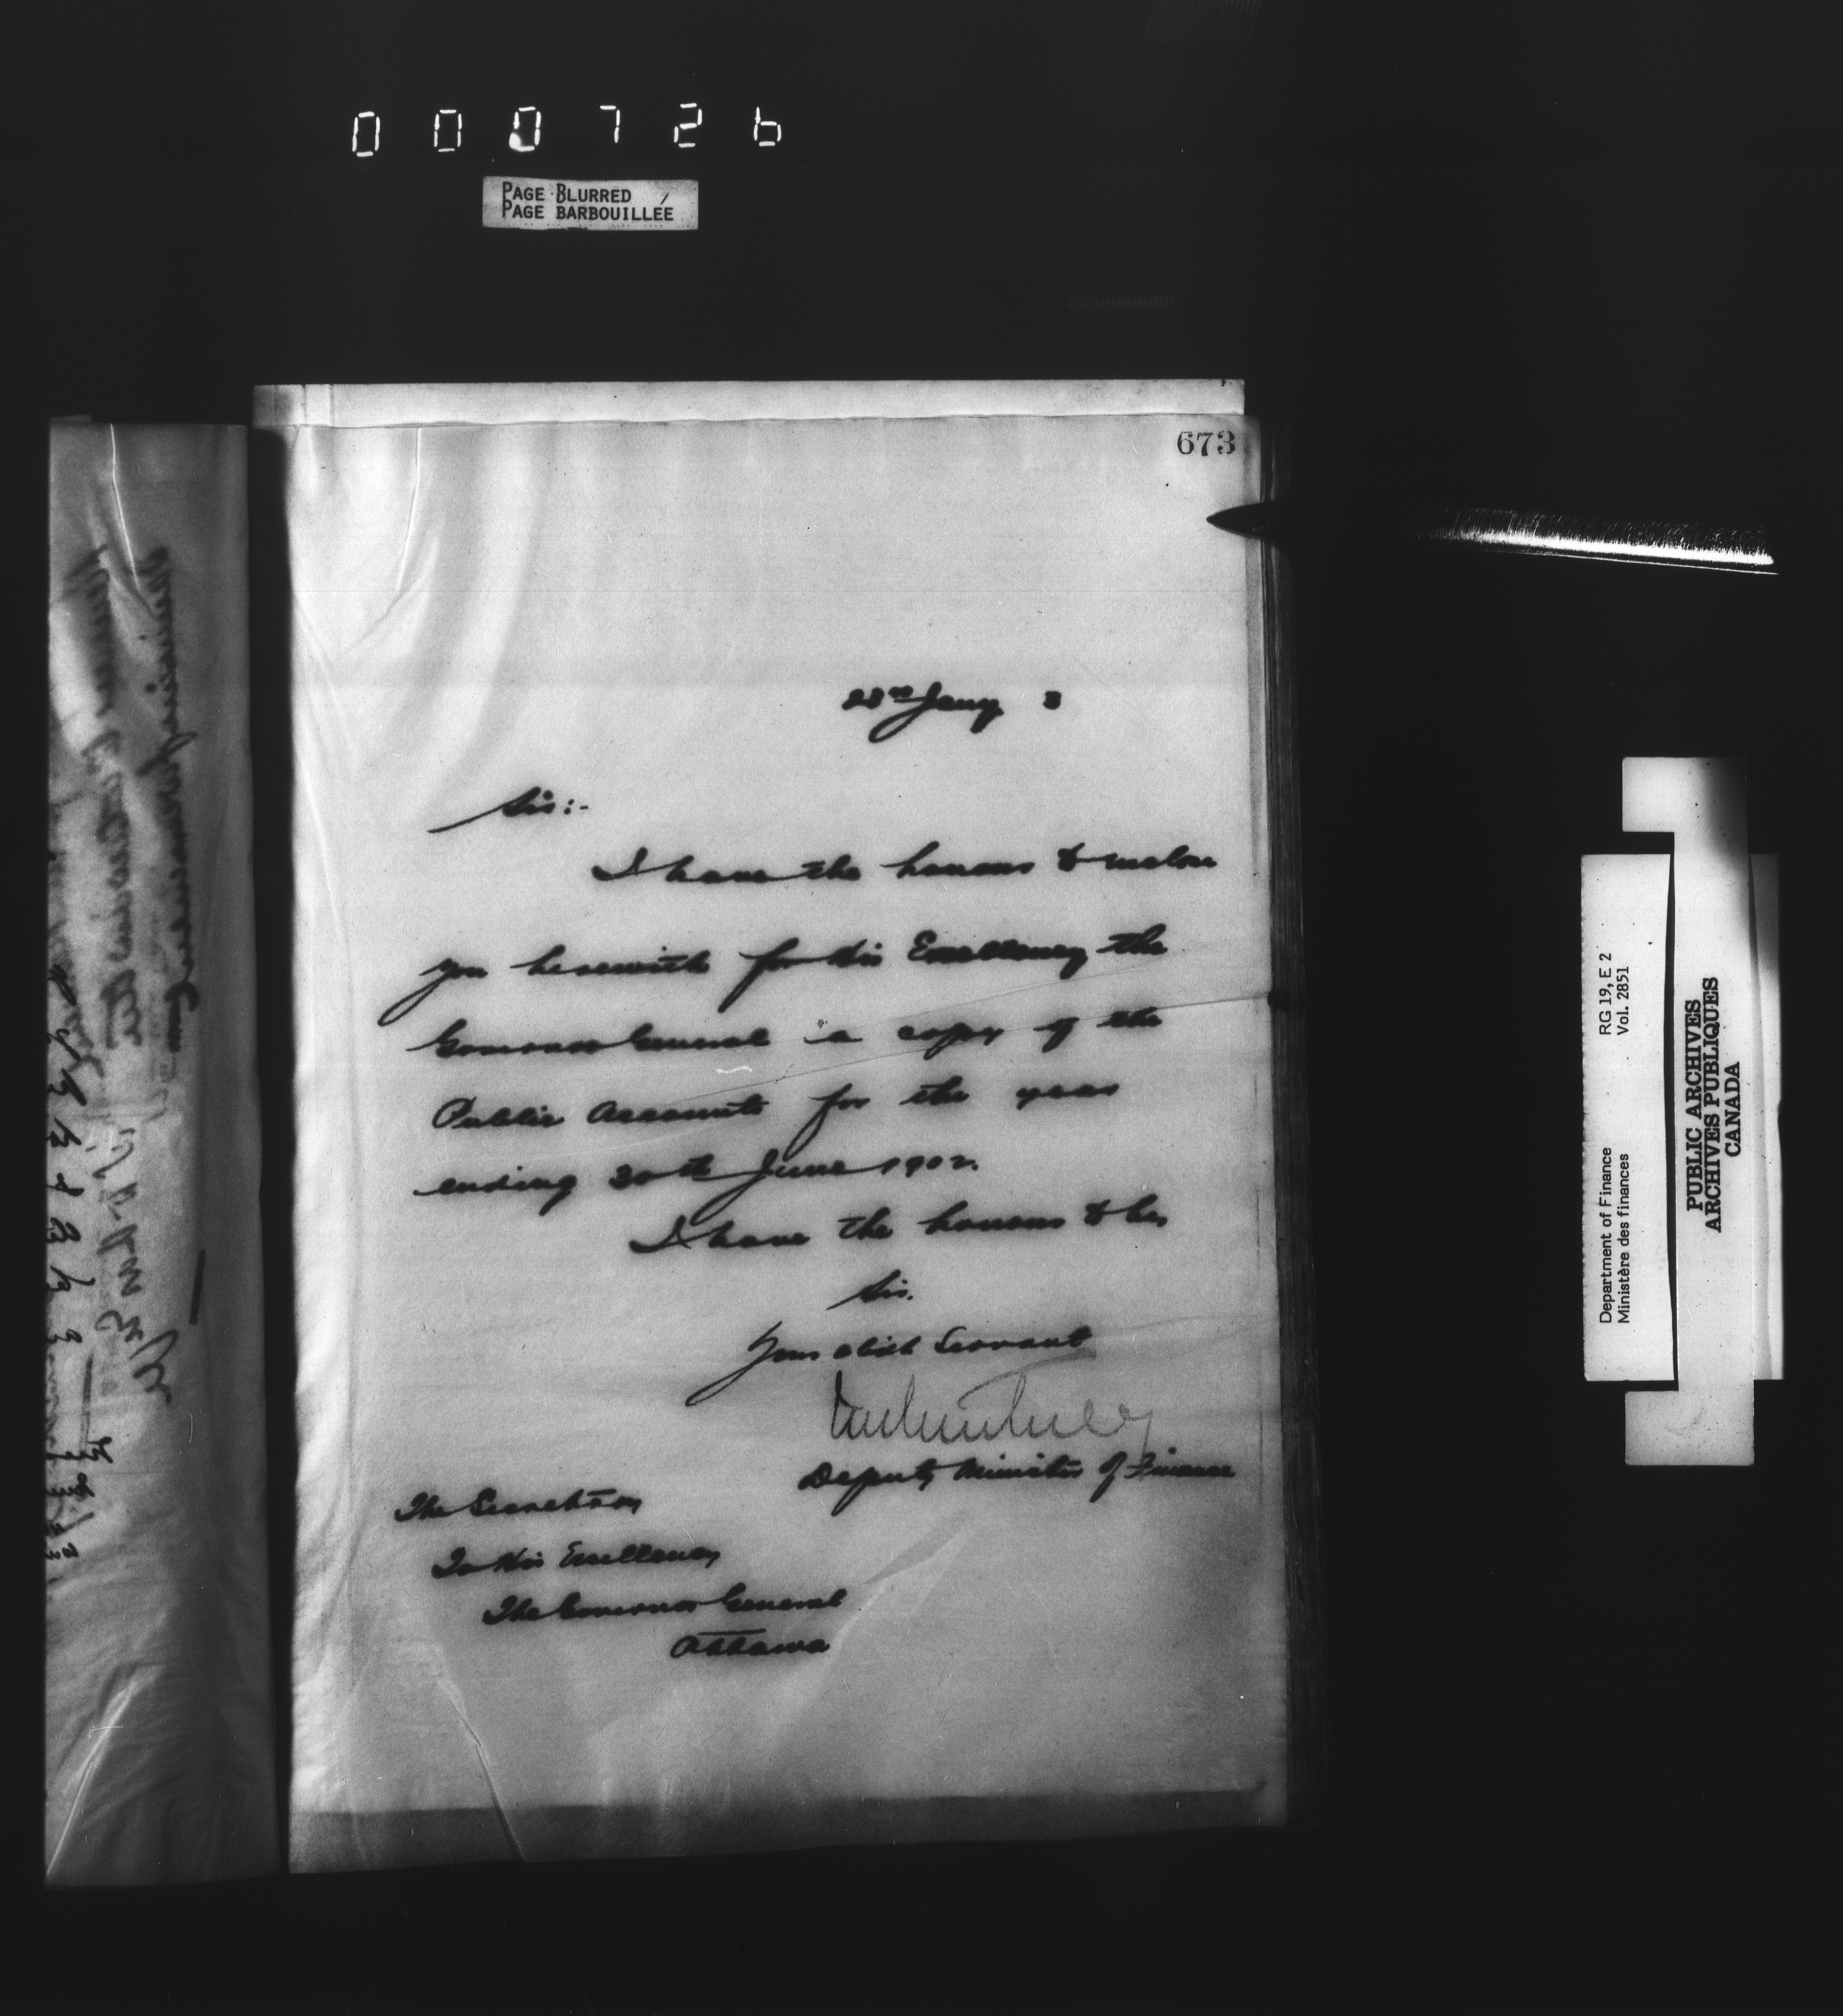 000726
PAGE BLURRED
PAGE BARBOUILLÉE
673
23rd Jany 3
Sir:-
I have the honour to enclose
you herewith for His Excellency the
Governor General a copy of the
Public Accounts for the year
ending 30th June 1902.
I have the honour to be,
Sir,
Your obdt Servant
Deputy Minister of Finance
The Secretary
To His Excellency
The Governor General
Ottawa
Department of Finance RG 19, E 2
Ministère des finances Vol. 2851
PUBLIC ARCHIVES
ARCHIVES PUBLIQUES
CANADA